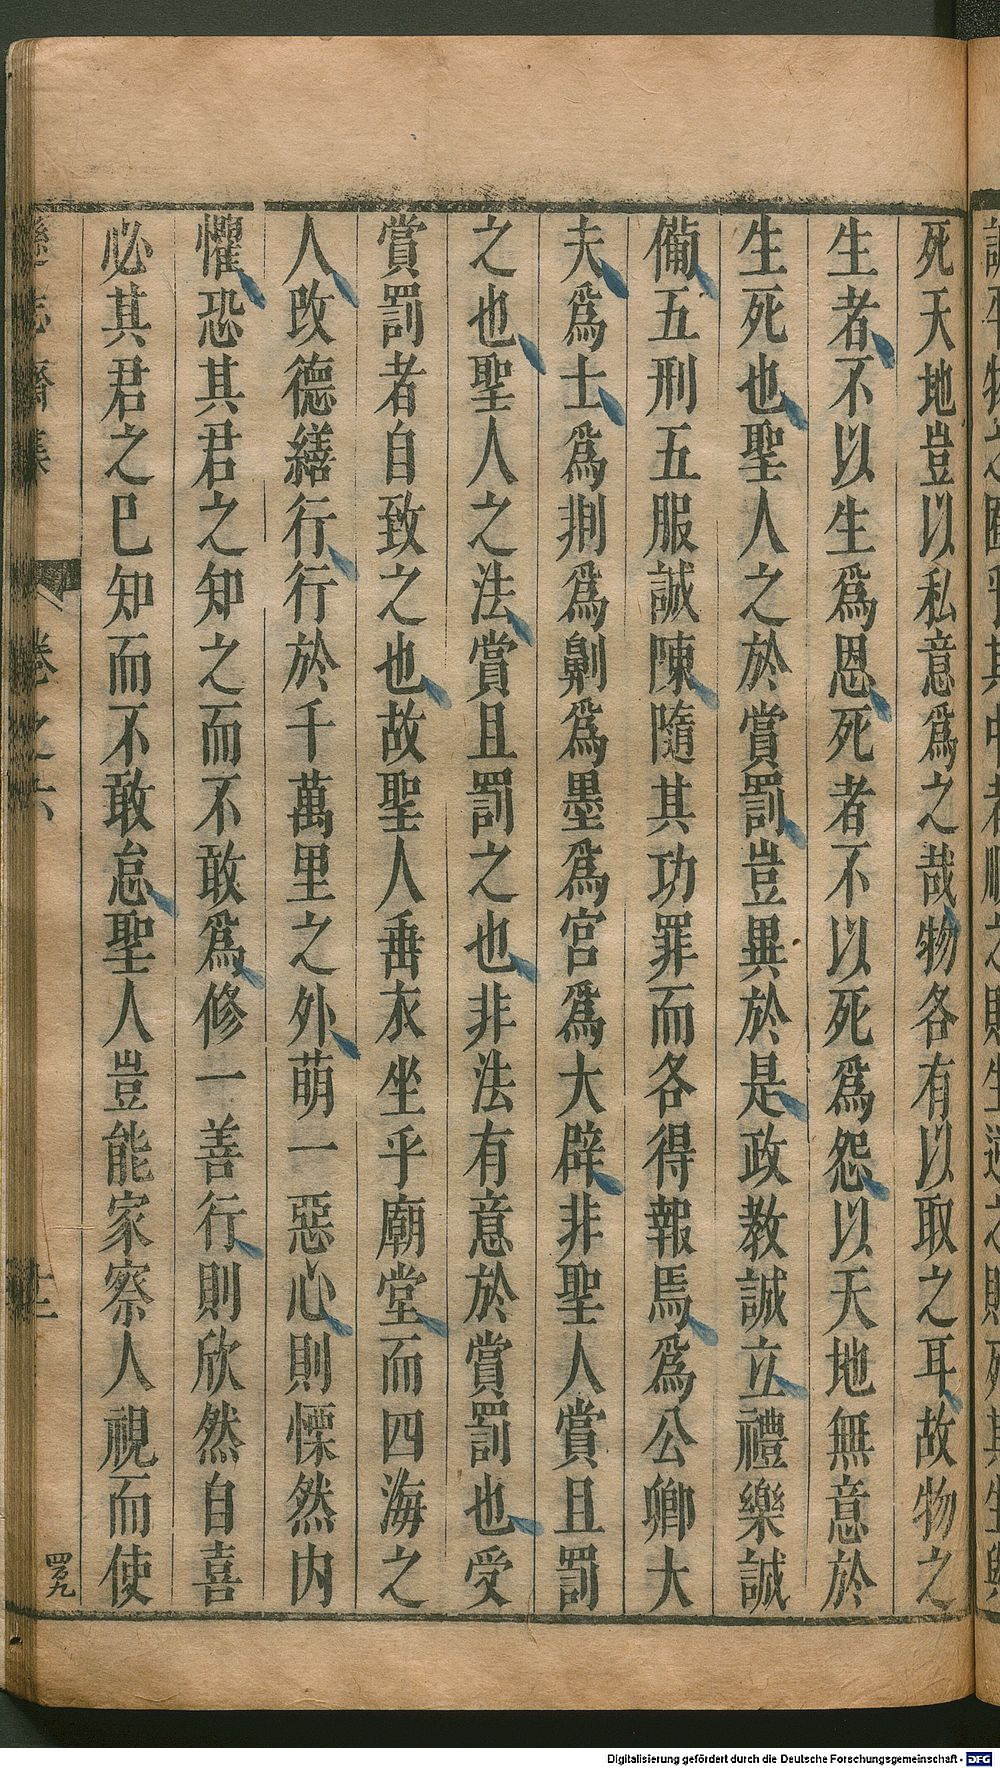 死天地豈以私意爲之哉物各有以取之耳故物之
生者不以生爲恩死者不以死爲怨以天地無意於
生死也聖人之於賞罰豈異於是政教誠立禮樂誠
僃五刑五服誠陳隨其功罪而各得報焉爲公卿大
夫爲士爲剕爲劓爲墨爲宮爲大辟非聖人賞且罰
之也聖人之法賞且罰之也非法有意於賞罰也受
賞罰者自致之也故聖人垂衣坐乎廟堂而四海之
人改德繕行行於千萬里之外萌一惡心則慄然内
懼恐其君之知之而不敢爲修一善行則欣然自喜
必其君之已知而不敢怠聖人豈能家察人視而使
遜志齋集
卷之六
十二
四百九
Digitalisierung gefördert durch die Deutsche Forschungsgemeinschaft - DFG